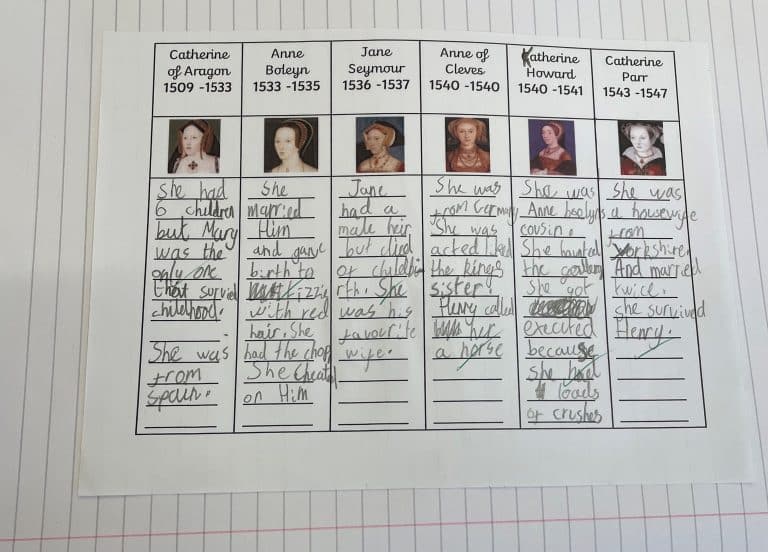 Catherine
of Aragon
1509 -1533
She had
6 children
but Mary
was the
only one
that survied
childhood.
She was
from
Spain.
Anne
Boleyn
1533 -1535
She
married
Him
and gave
birth to
Lizzie
with red
hair. She
had the chop
She Cheated
on Him
Jane
Seymour
1536 -1537
Jane
had a
male heir
but died
of childbi
rth. She
was his
favourite
wife.
Anne of
Cleves
1540 -1540
She was
from Germany
She was
acted liked
the kings
sister.
Henry called
her
a horse
Katherine
Howard
1540 -1541
She was
Anne boolyns
cousin.
She haunted
the
She got
executed
because
She had
loads
of crushes
Catherine
Parr
1543 -1547
She was
a housewife
from
Yorkshire.
And married
twice.
she survived
Henry.